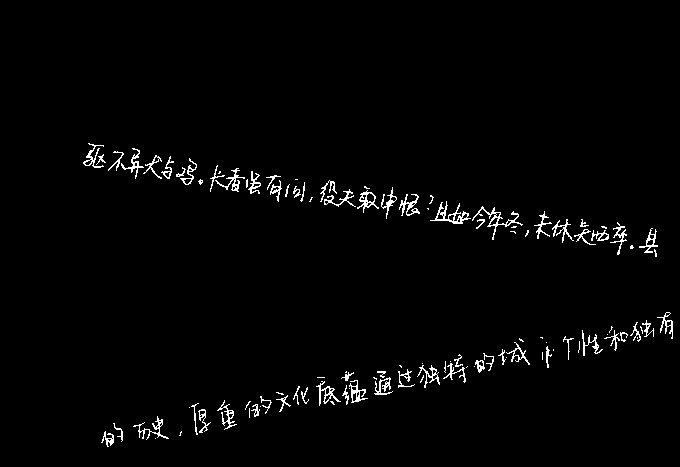 驱不异犬与鸡。长者虽有问,役夫敢申恨?且如今年冬,未休关西卒。县
的历史,厚重的文化底蕴通过独特的城市个性和独有